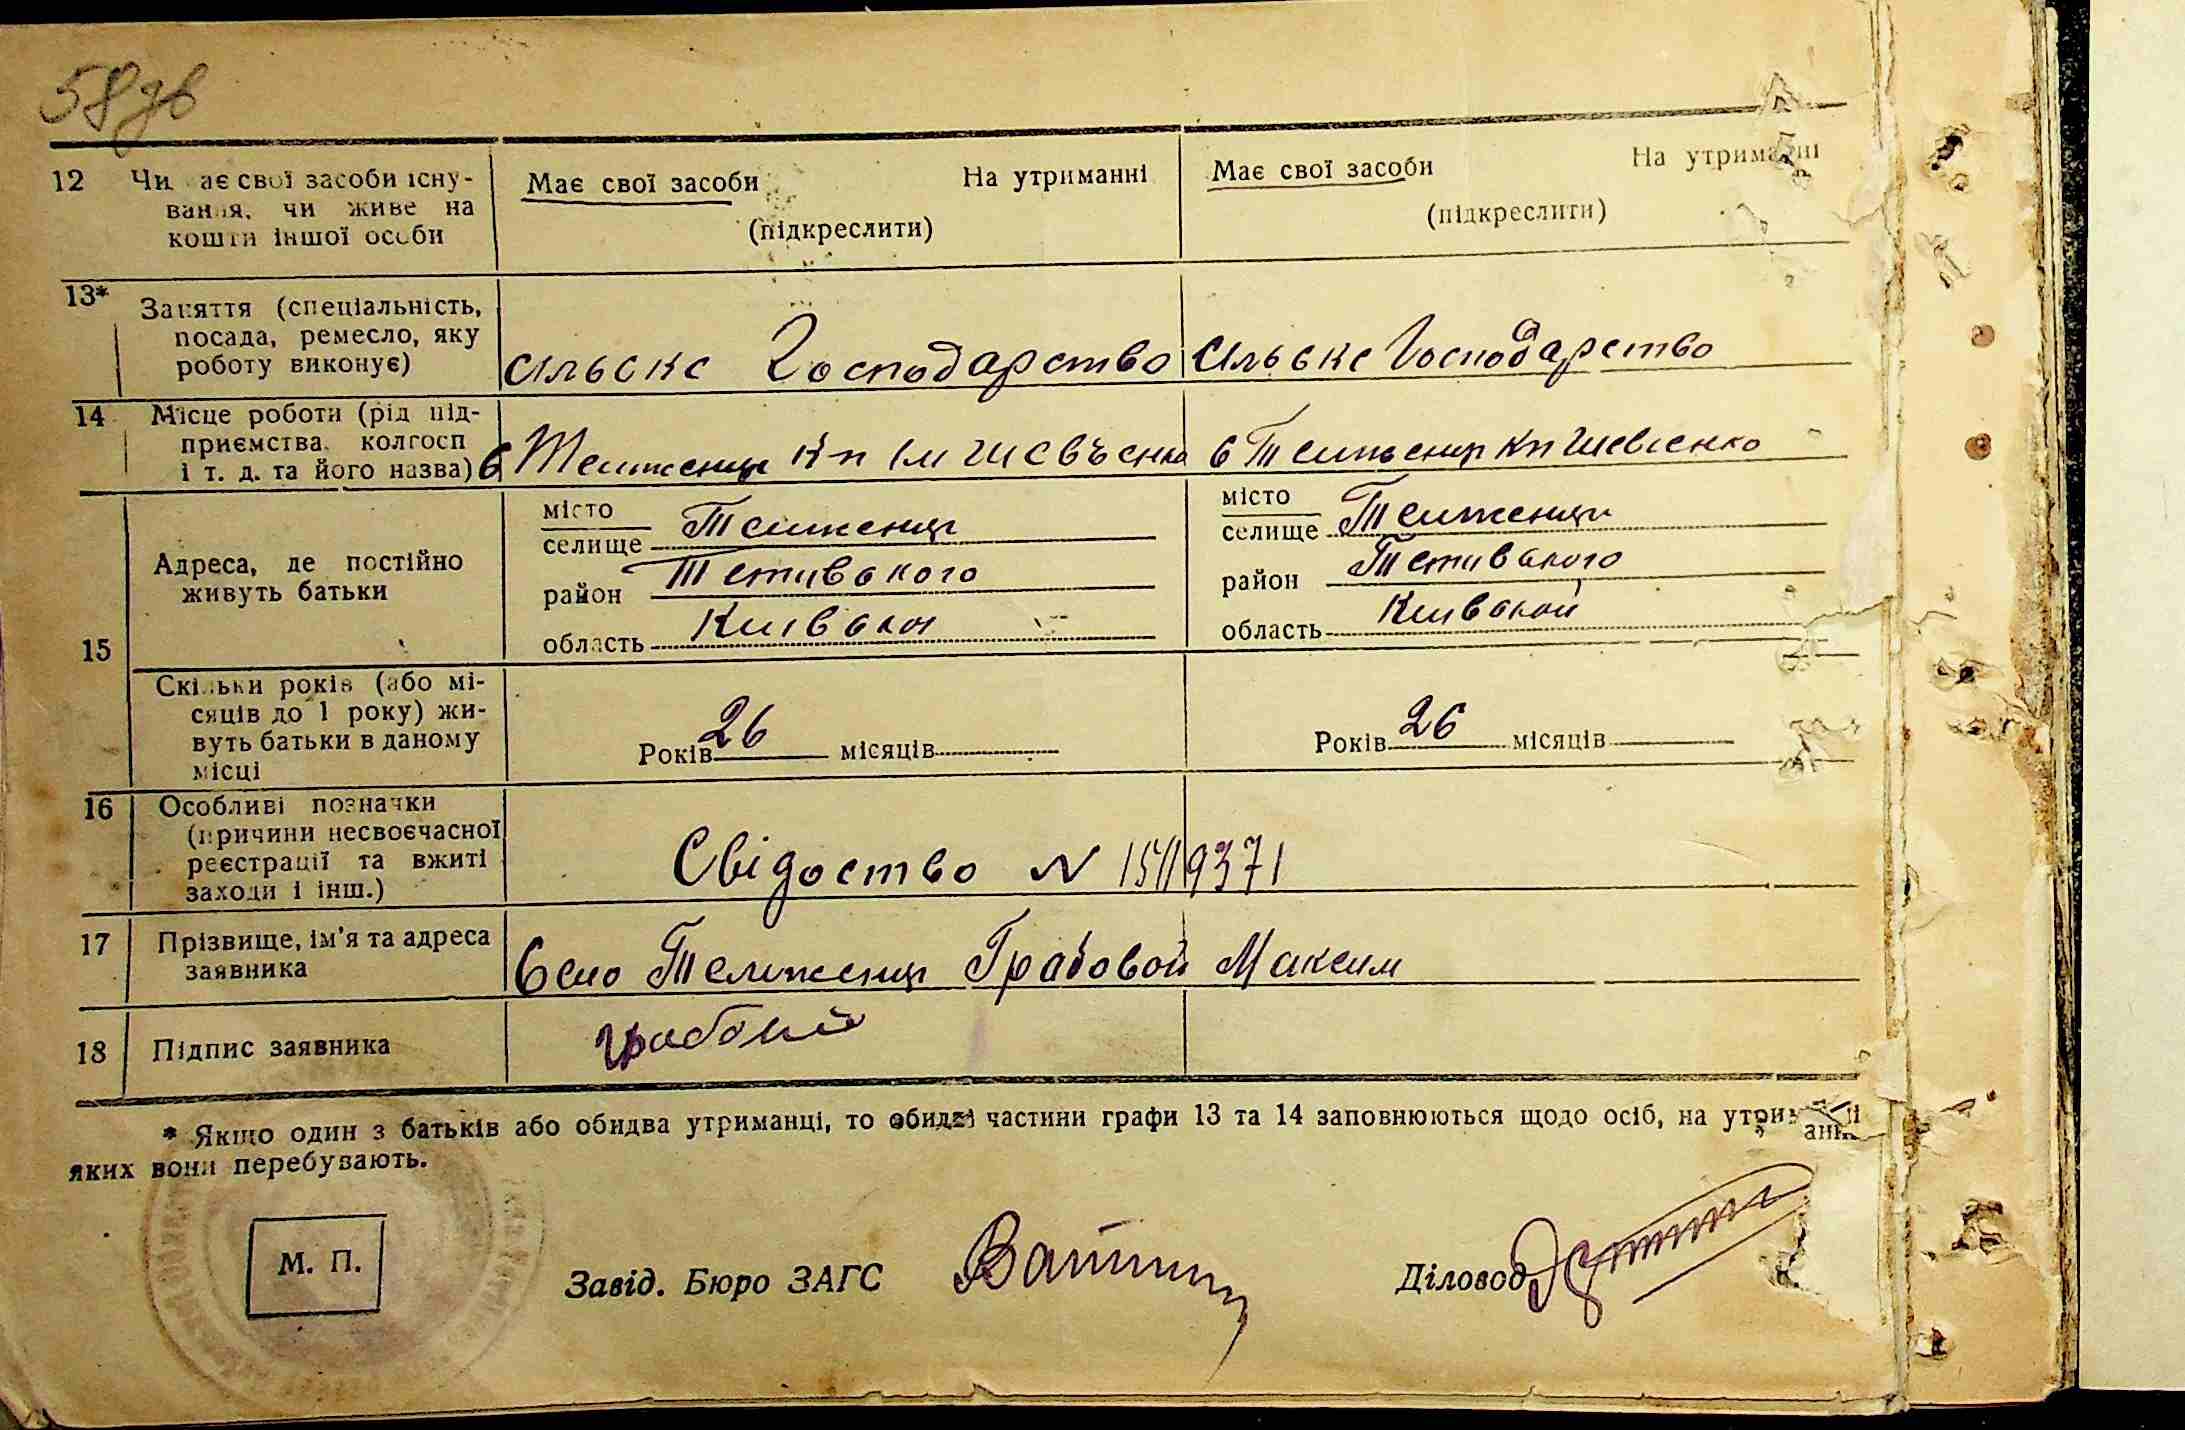 58 зв
12 Чи має свої засоби існу- Має свої засоби На утриманні Має свої засоби На утриманні
вання, чи живе на (підкреслити) (підкреслити)
кошти іншої особи
13* Заняття (спеціальність,
посада, ремесло, яку
роботу виконує) сільске Господарство сільске Господарство
14 Місце роботи (рід під-
приємства, колгосп
і т. д. та його назва) Кп Ім Шевченко Кп Шевченко
15 Адреса, де постійно
живуть батьки
місто місто
селище селище
район Тетивського район Тетивського
область область
Скільки років (або мі-
сяців до 1 року) жи-
вуть батьки в даному
місці
Років 26 місяців Років 26 місяців
16 Особливі позначки
(причини несвоєчасної
реєстрації та вжиті
заходи і інш.)
Свідоство N
17 Прізвище, ім'я та адреса
заявника
Грабовой Максим
18 Підпис заявника
* Якщо один з батьків або обидва утриманці, то обидві частини графи 13 та 14 заповнюються щодо осіб, на утриманні
яких вони перебувають.
М. П.
Завід. Бюро ЗАГС Діловод